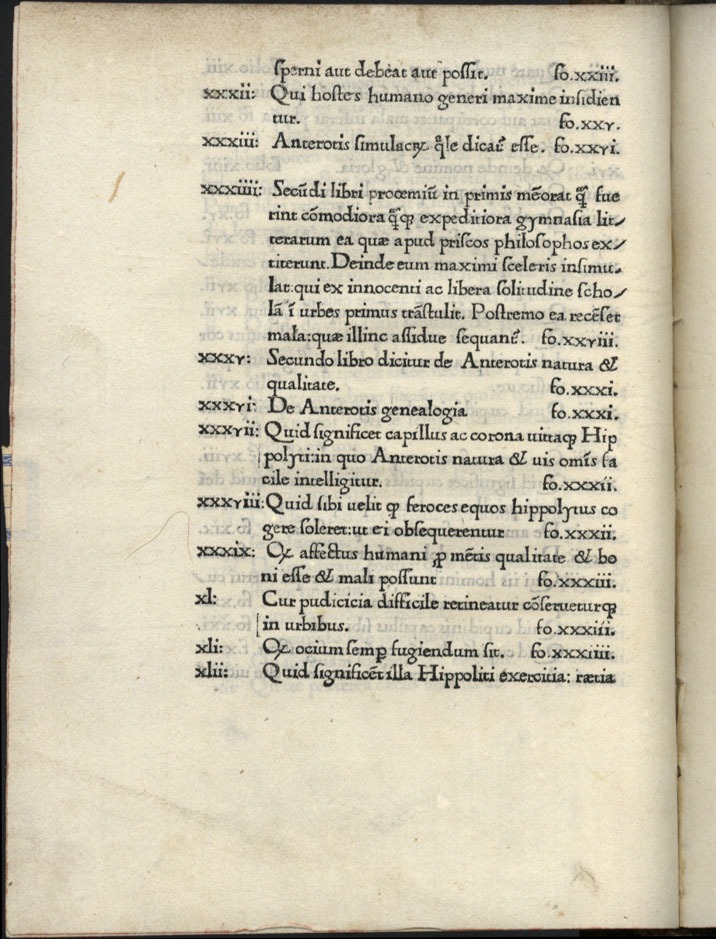 sperni aut debeat aut possit. fo.xxiii.
xxxii: Qui hostes humano generi maxime insidien
tur. fo.xxv.
xxxiii: Anterotis simulacꝝ q̃le dicat᷑ esse. fo.xxvi.
xxxiiii: Secũdi libri prooemiũ in primis mẽorat q̃ꝫ fue
rint cõmodiora q̃ꝫꝙ expeditiora gymnasia lit⸗
terarum ea quæ apud priscos philosophos ex⸗
titerunt.Deinde eum maximi sceleris insimu⸗
lat:qui ex innocenti ac libera solitudine scho⸗
lã ĩ urbes primus trãstulit. Postremo ea recẽset
mala:quæ illinc assidue sequant᷑. fo.xxviii.
xxxv: Secundo libro dicitur de Anterotis natura &
qualitate. fo.xxxi.
xxxvi: De Anterotis genealogia fo.xxxi.
xxxvii: Quid significet capillus ac corona uittaqꝫ Hip
polyti:in quo Anterotis natura & uis omĩs fa
cile intelligitur. fo.xxxii.
xxxviii:Quid sibi uelit ꝙ feroces equos hippolytus co
gere soleret:ut ei obsequerentur fo.xxxii.
xxxix: Qꝫ affectus humani ꝓ mẽtis qualitate & bo
ni esse & mali possunt fo.xxxiii.
xl: Cur pudicicia difficile retineatur cõserueturqꝫ
in urbibus. fo.xxxiii.
xli: Qꝫ ocium semꝑ fugiendum sit. fo.xxxiiii.
xlii: Quid significẽt illa Hippoliti exercitia: rætia